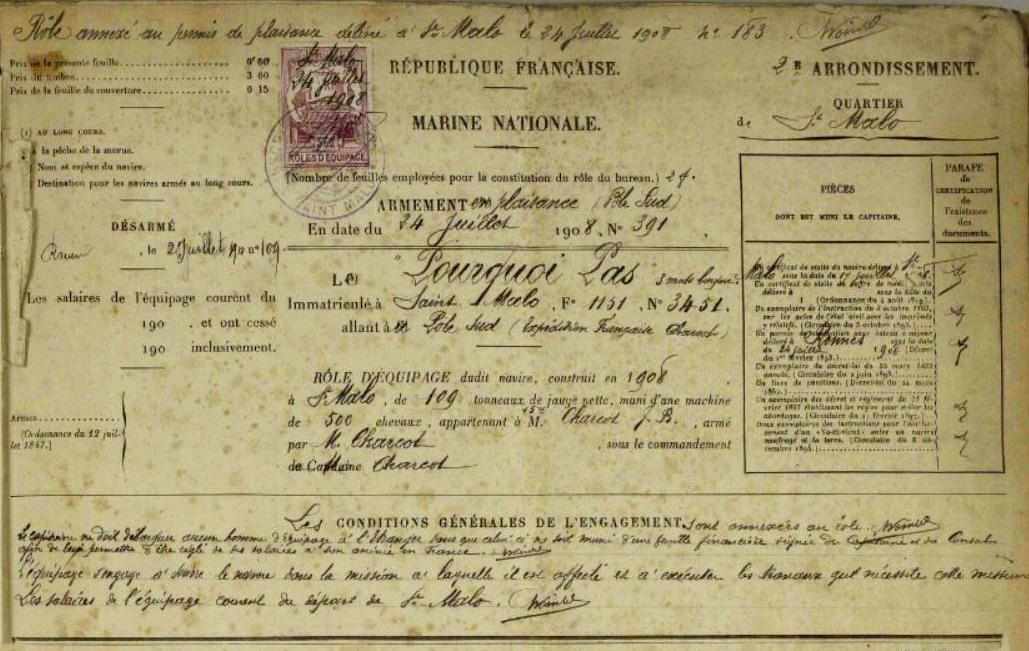 Rôle annexé au permis de plaisance délivré à St Malo le 24 Juillet 1908 n° 183.
Prix de la présente feuille 0f 60
Prix du timbre 3 60
Prix de la feuille de couverture 0 15
(1) AU LONG COURS.
à la pêche de la morue.
Nom et espèce du navire.
Destination pour les navires armés au long cours.
DÉSARMÉ
Rouen, le 2 Juillet 1910 n° 109
Les salaires de l'équipage courent du
190 . et ont cessé
190 inclusivement.
Armes
(Ordonnance du 12 juil-
let 1847.)
St Malo
24 Juillet
1908
RÔLES D'ÉQUIPAGE
RÉPUBLIQUE FRANÇAISE.
MARINE NATIONALE.
(Nombre de feuilles employées pour la constitution du rôle du bureau.) 2 f.
ARMEMENT en plaisance (Pôle Sud)
En date du 24 Juillet 1908, N° 391
LE "Pourquoi Pas 3 mats
Immatriculé à Saint Malo, F° 1151, N° 3451.
allant à Pôle Sud (Expédition Française Charcot)
RÔLE D'ÉQUIPAGE dudit navire, construit en 1908
à St Malo, de 109 tonneaux de jauge nette, muni d'une machine
de 500 chevaux, appartenant à M. Charcot J. B., armé
par M. Charcot, sous le commandement
de Capitaine Charcot
2E ARRONDISSEMENT.
QUARTIER
de St Malo
PIÈCES
DONT EST MUNI LE CAPITAINE.
PARAFE
de
CERTIFICATION
de
l'existence
des
documents.
Un certificat de visite du navire délivré à St
Malo sous la date du 17 juillet
Un certificat de visite du coffre de
délivré à sous la date du
(Ordonnance du 4 août 1819).
Un exemplaire de l'instruction du 2 octobre
sur les actes de l'état civil avec les imprimés
y relatifs. (Circulaire du 5 octobre 1893.)
Un permis de
délivré à Rennes sous la date
du 24 juillet 1908 (Décret
du 1er février 1893.)
Un exemplaire du décret-loi du 24 mars 1852
Un livre de punitions. (Décret-loi du 24 mars
1852.)
Un exemplaire des décret et règlement du 21 fé-
vrier 1897 établissant les règles pour éviter les
abordages. (Circulaire du 21 février 1897.)
Deux exemplaires des instructions pour l'établis-
sement d'un «Va-et-vient» entre un navire
naufragé et la terre. (Circulaire du 8 dé-
cembre 1894.)
Les CONDITIONS GÉNÉRALES DE L'ENGAGEMENT sont annexées au rôle.
Le capitaine ne doit débarquer aucun homme d'équipage à l'étranger sans que celui-ci ne soit muni d'une feuille financière signée du Capitaine et du Consul
afin de lui permettre d'être réglé de ses salaires à son arrivée en France.
L'équipage s'engage à suivre le navire dans la mission à laquelle il est affecté et à exécuter les travaux que nécessite cette mission
Les salaires de l'équipage courent du départ de St Malo.